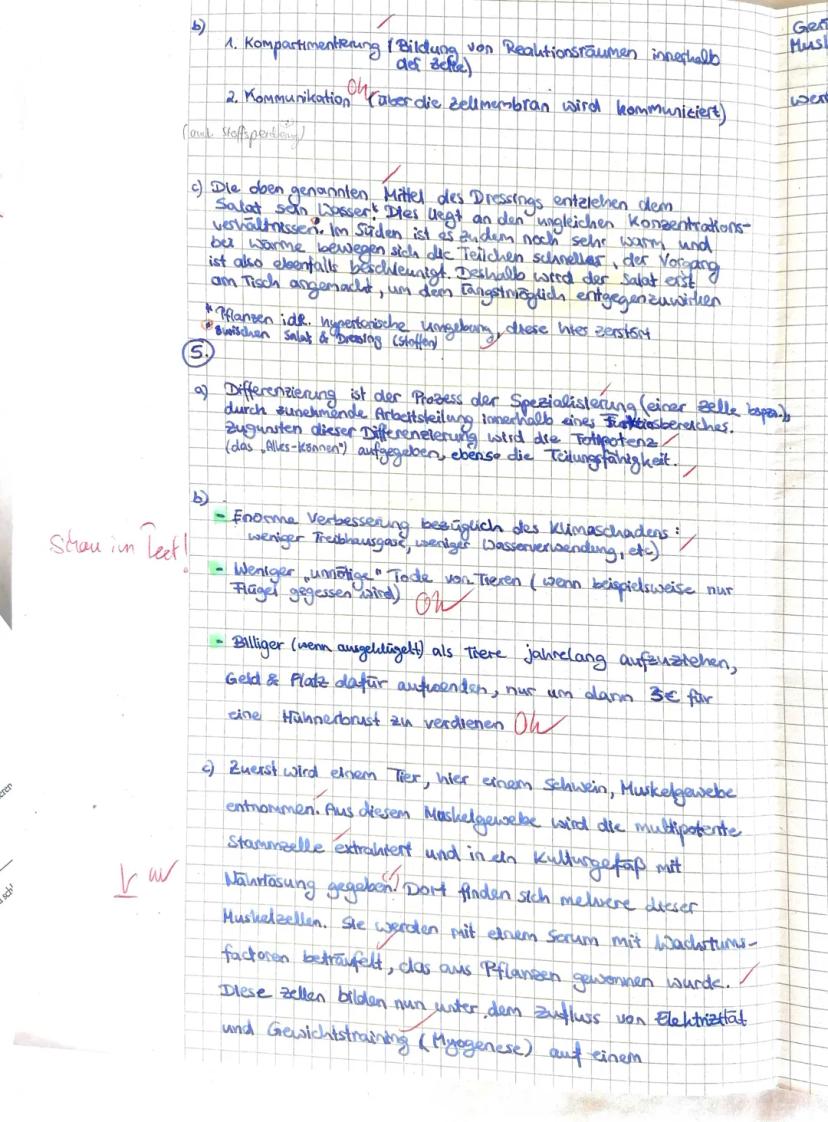 b)
1. Kompartimentierung (Bildung von Reaktionsräumen innerhalb
der Zelle)
2. Kommunikation (über die Zellmembran wird kommuniziert)
c) Die oben genannten Mittel des Dressings entziehen dem
Salat sein Wasser! Dies liegt an den ungleichen Konzentrations-
verhältnissen. Im Süden ist es zudem noch sehr warm und
bei Wärme bewegen sich die Teilchen schneller, der Vorgang
ist also ebenfalls beschleunigt. Deshalb wird der Salat erst
am Tisch angemacht, um dem längstmöglich entgegenzuwirken
* Pflanzen idR. hypertonische Umgebung, diese hier zerstört
* zwischen Salat & Dressing (Stoffen)
5.
a) Differenzierung ist der Prozess der Spezialisierung (einer Zelle bspw.)
durch zunehmende Arbeitsteilung innerhalb eines Funktionsbereiches.
Zugunsten dieser Differenzierung wird die Totipotenz
(das "Alles-Können") aufgegeben, ebenso die Teilungsfähigkeit.
b)
- Enorme Verbesserung bezüglich des Klimaschadens:
weniger Treibhausgase, weniger Wasserverwendung, etc)
- Weniger "unnötige" Tode von Tieren (wenn beispielsweise nur
Flügel gegessen wird)
- Billiger (wenn ausgeklügelt) als Tiere jahrelang aufzuziehen,
Geld & Platz dafür aufwenden, nur um dann 3€ für
eine Hühnerbrust zu verdienen
c) Zuerst wird einem Tier, hier einem Schwein, Muskelgewebe
entnommen. Aus diesem Muskelgewebe wird die multipotente
Stammzelle extrahiert und in ein Kulturgefäß mit
Nährlösung gegeben. Dort finden sich mehrere dieser
Muskelzellen. Sie werden mit einem Serum mit Wachstums-
factoren beträufelt, das aus Pflanzen gewonnen wurde.
Diese Zellen bilden nun unter dem Zufluss von Elektrizität
und Gewichtstraining (Myogenese) auf einem